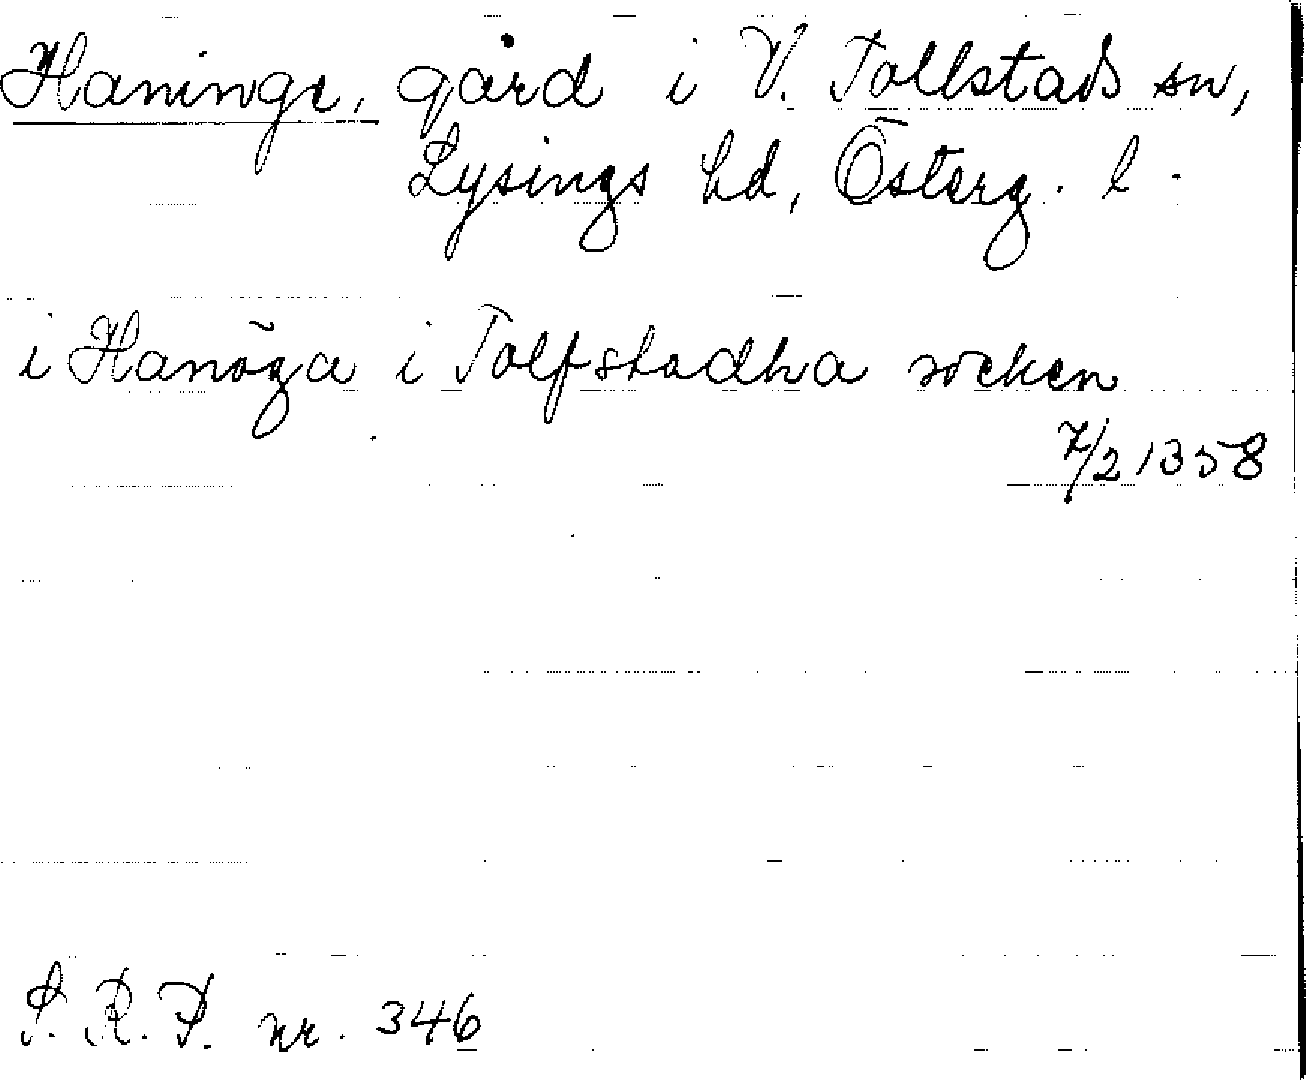 Haninge, gård i V. Tollstads sn,
Lysings hd, Österg. l.
i Hanöga i Tolfstadha socken
7/2 1358
S. R. P. nr. 346